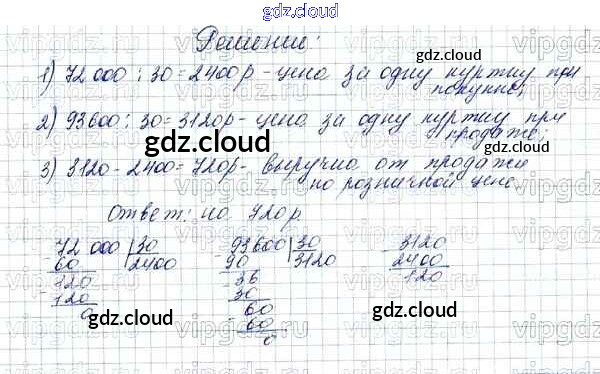 gdz.cloud
Решение:
gdz.cloud
1) 72 000 : 30 = 2400 р - цена за одну куртку при
покупке;
2) 93600 : 30 = 3120 р - цена за одну куртку при
продаже;
gdz.cloud
gdz.cloud
3) 3120 - 2400 = 720 р - выручка от продажи
по розничной цене.
Ответ: на 720 р.
- 72 000 | 30 - 93600 | 30 - 3120
60 2400 90 3120 2400
- 120 - 36 120
120 30
0 - 60
60
0
gdz.cloud
gdz.cloud